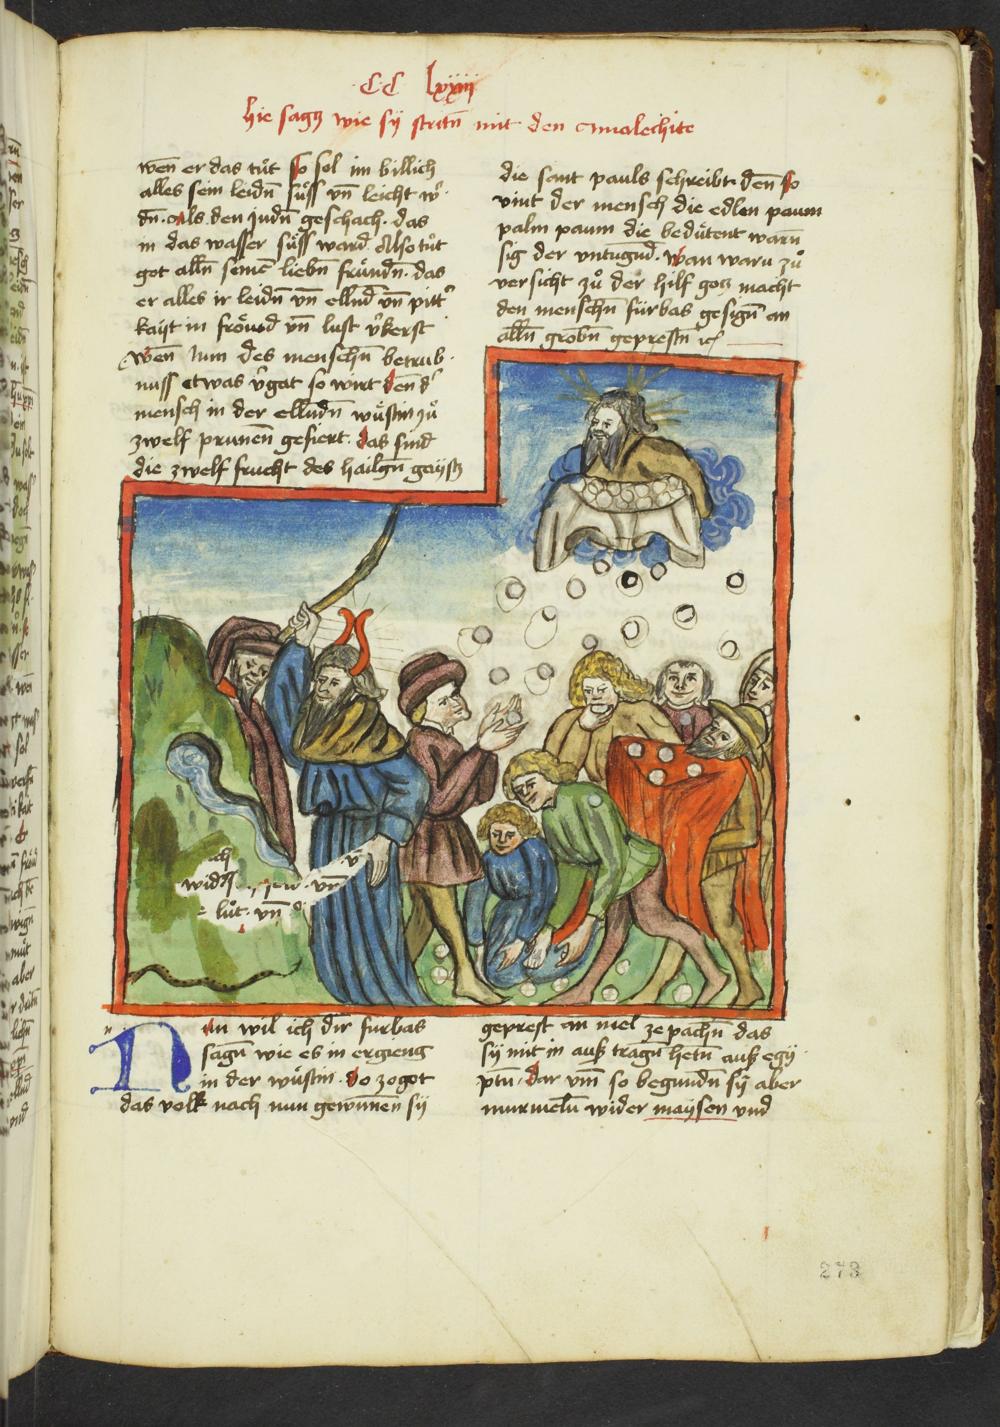 CC lxxiij
hie sagt wie sÿ stritn̄ mit den amalechite
wen̄ er das tůt so sol im billich
alles sein leidn̄ sůss vn̄ leicht w
dn̄. Als den Judn̄ geschach. das
in das wasser sůss ward. Also tůt
got alln̄ seinē liebn̄ frůndn̄. das
er alles ir leidn̄ vn̄ ellnd vn̄ pitt
kaÿt in frowd vn̄ lust vkerst
wen̄ nun des menschn̄ betrub
nuss etwas vgat so wirt den d
mensch in der ellndn̄ wůstin zů
zwelf prunen̄ gefiert. das sind
die zwelf frucht des hailgn̄ gaÿstz
die sant pauls schreibt. den̄ so
vint der mensch die edlen paum
palm paum die bedůtent warn̄
sig der vntugnd. wan warn zů
versicht zů der hilf gotz macht
den menschn̄ fůrbas gesign̄ an
alln̄ grobn̄ geprestn̄ ꝛc
ach
widz vn̄ v̄
lůt. vn̄
Nun wil ich dir furbas
sagn̄ wie es in ergieng
in der wůstin. do zogot
das volk nach nun gewun̄en sÿ
geprest an mel ze pachn̄ das
sÿ mit in auß tragn̄ hetn̄ auß egÿ
ptn̄. dar vm̄ so begundn̄ sÿ aber
murmeln̄ wider maÿsen vnd
273